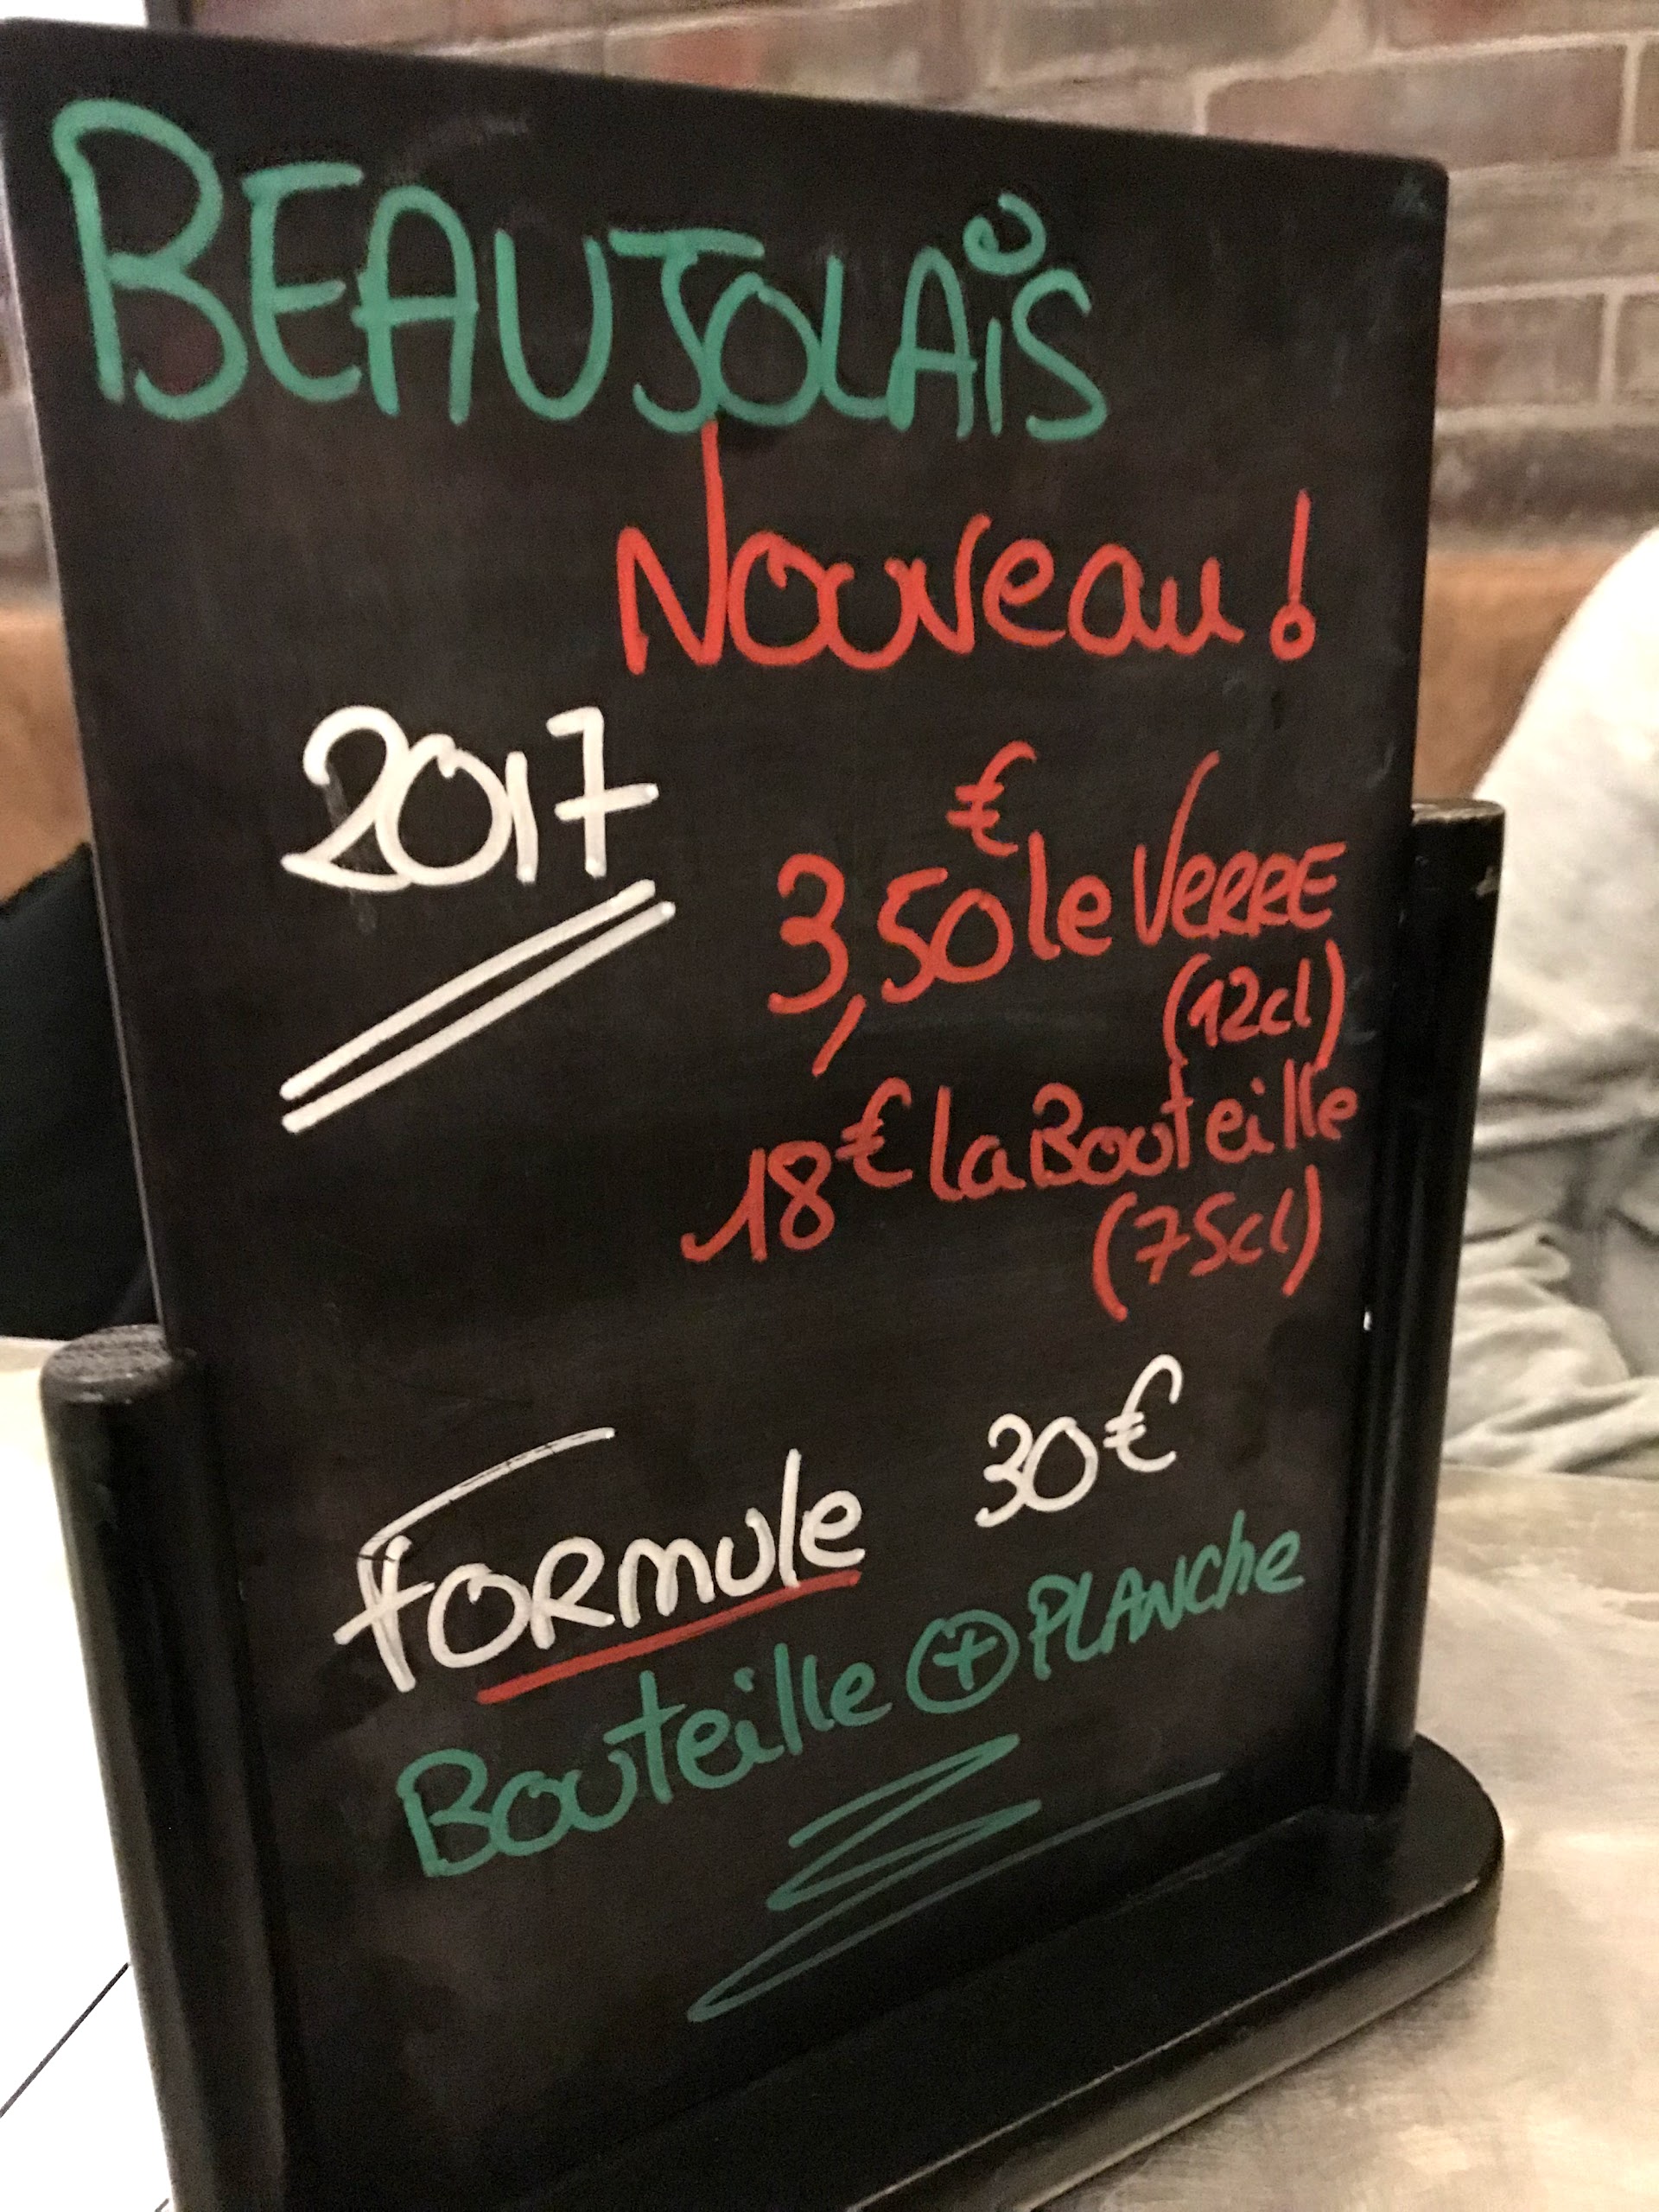 BEAUJOLAIS
Nouveau !
2017
3,50€ le VERRE
(12cl)
18€ la Bouteille
(75cl)
FORmule 30€
Bouteille + PLANChe